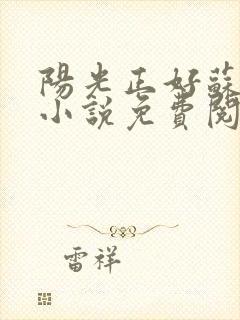 陽光正好蘇
小說免費閱
雷祥